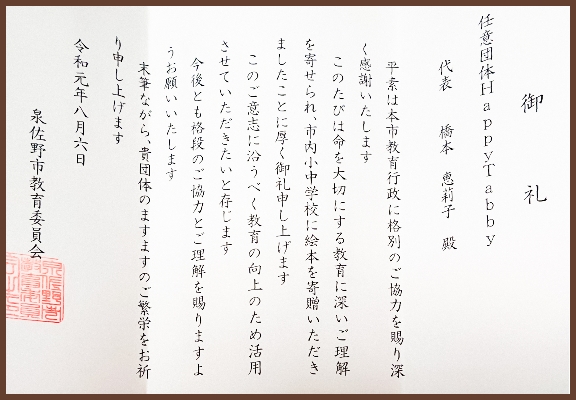 御礼
任意団体HappyTabby
代表 橋本 恵莉子 殿
平素は本市教育行政に格別のご協力を賜り深
く感謝いたします
このたびは命を大切にする教育に深いご理解
を寄せられ、市内小中学校に絵本を寄贈いただき
ましたことに厚く御礼申し上げます
このご意志に沿うべく教育の向上のため活用
させていただきたいと存じます
今後とも格段のご協力とご理解を賜りますよ
うお願いいたします
末筆ながら、貴団体のますますのご繁栄をお祈
り申し上げます
令和元年八月六日
泉佐野市教育委員会